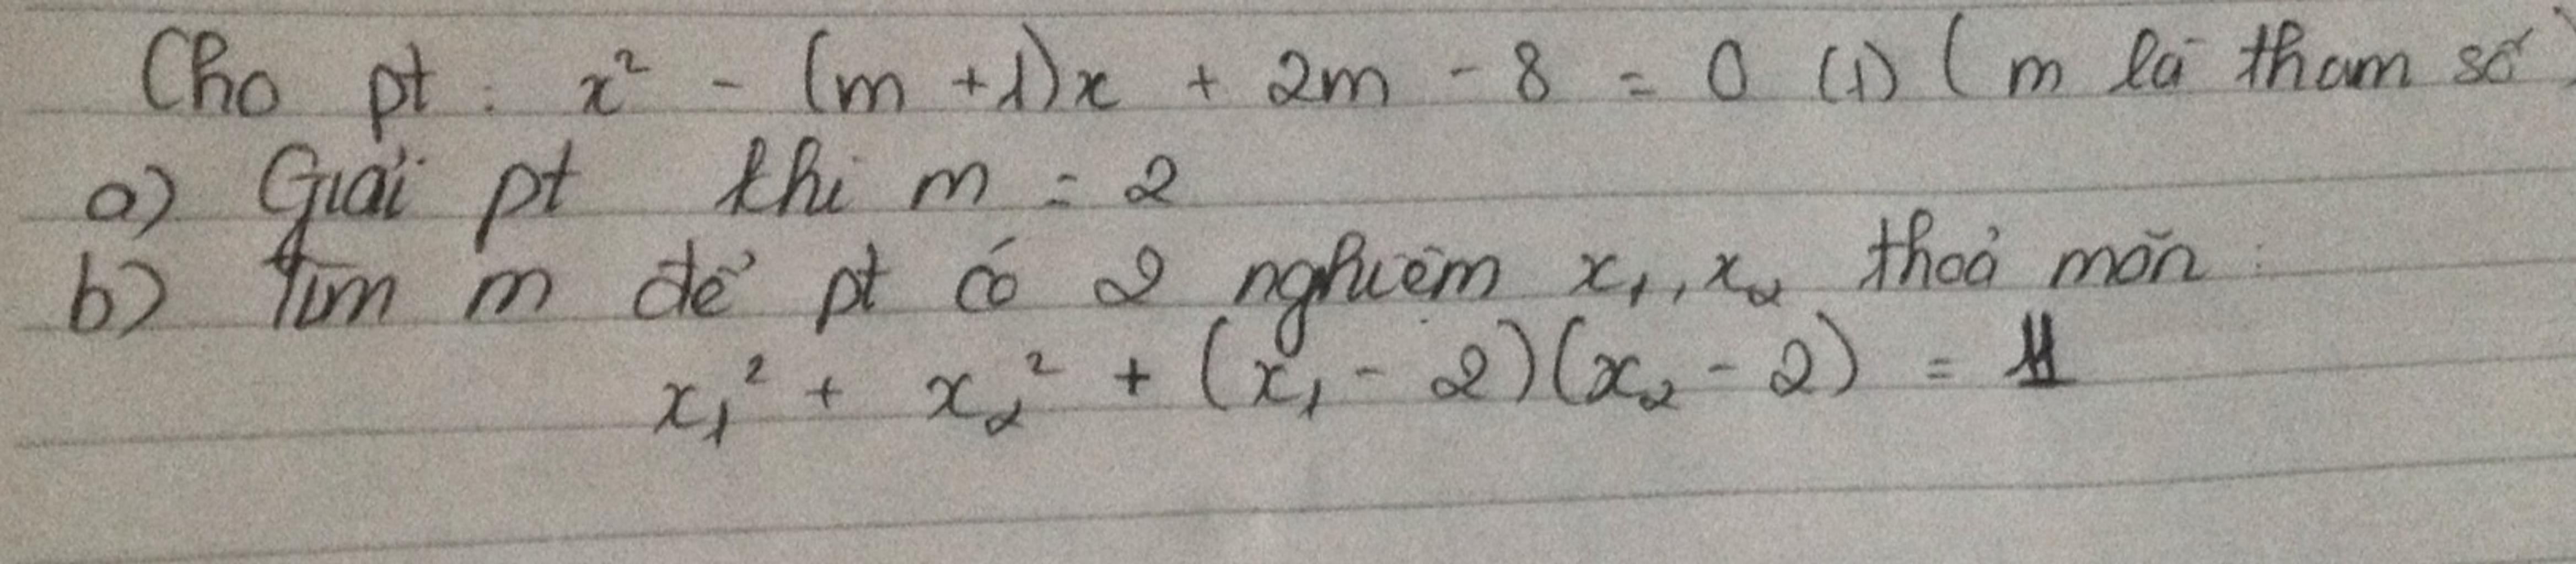 Cho pt : x² - (m +1)x + 2m - 8 = 0 (1) ( m là tham số )
a) Giải pt khi m = 2
b) Tìm m để pt có 2 nghiệm x₁, x₂ thoả mãn :
x₁² + x₂² + (x₁ - 2)(x₂ - 2) = 11